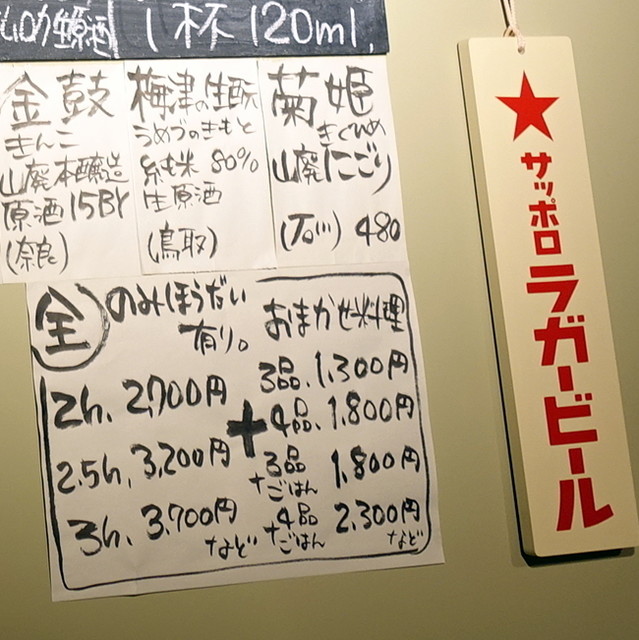 生原酒 1杯 120ml,
金鼓
きんこ
山廃本醸造
原酒15BY
(奈良)
梅津の生酛
うめづのきもと
純米 80%
生原酒
(鳥取)
菊姫
きくひめ
山廃にごり
(石川) 480
全 のみほうだい
有り。
2h、2,700円
2.5h、3,200円
3h、3,700円
など
+
おまかせ料理
3品、1,300円
4品、1,800円
3品 1,800円
+ごはん
4品 2,300円
+ごはん など
★
サッポロラガービール